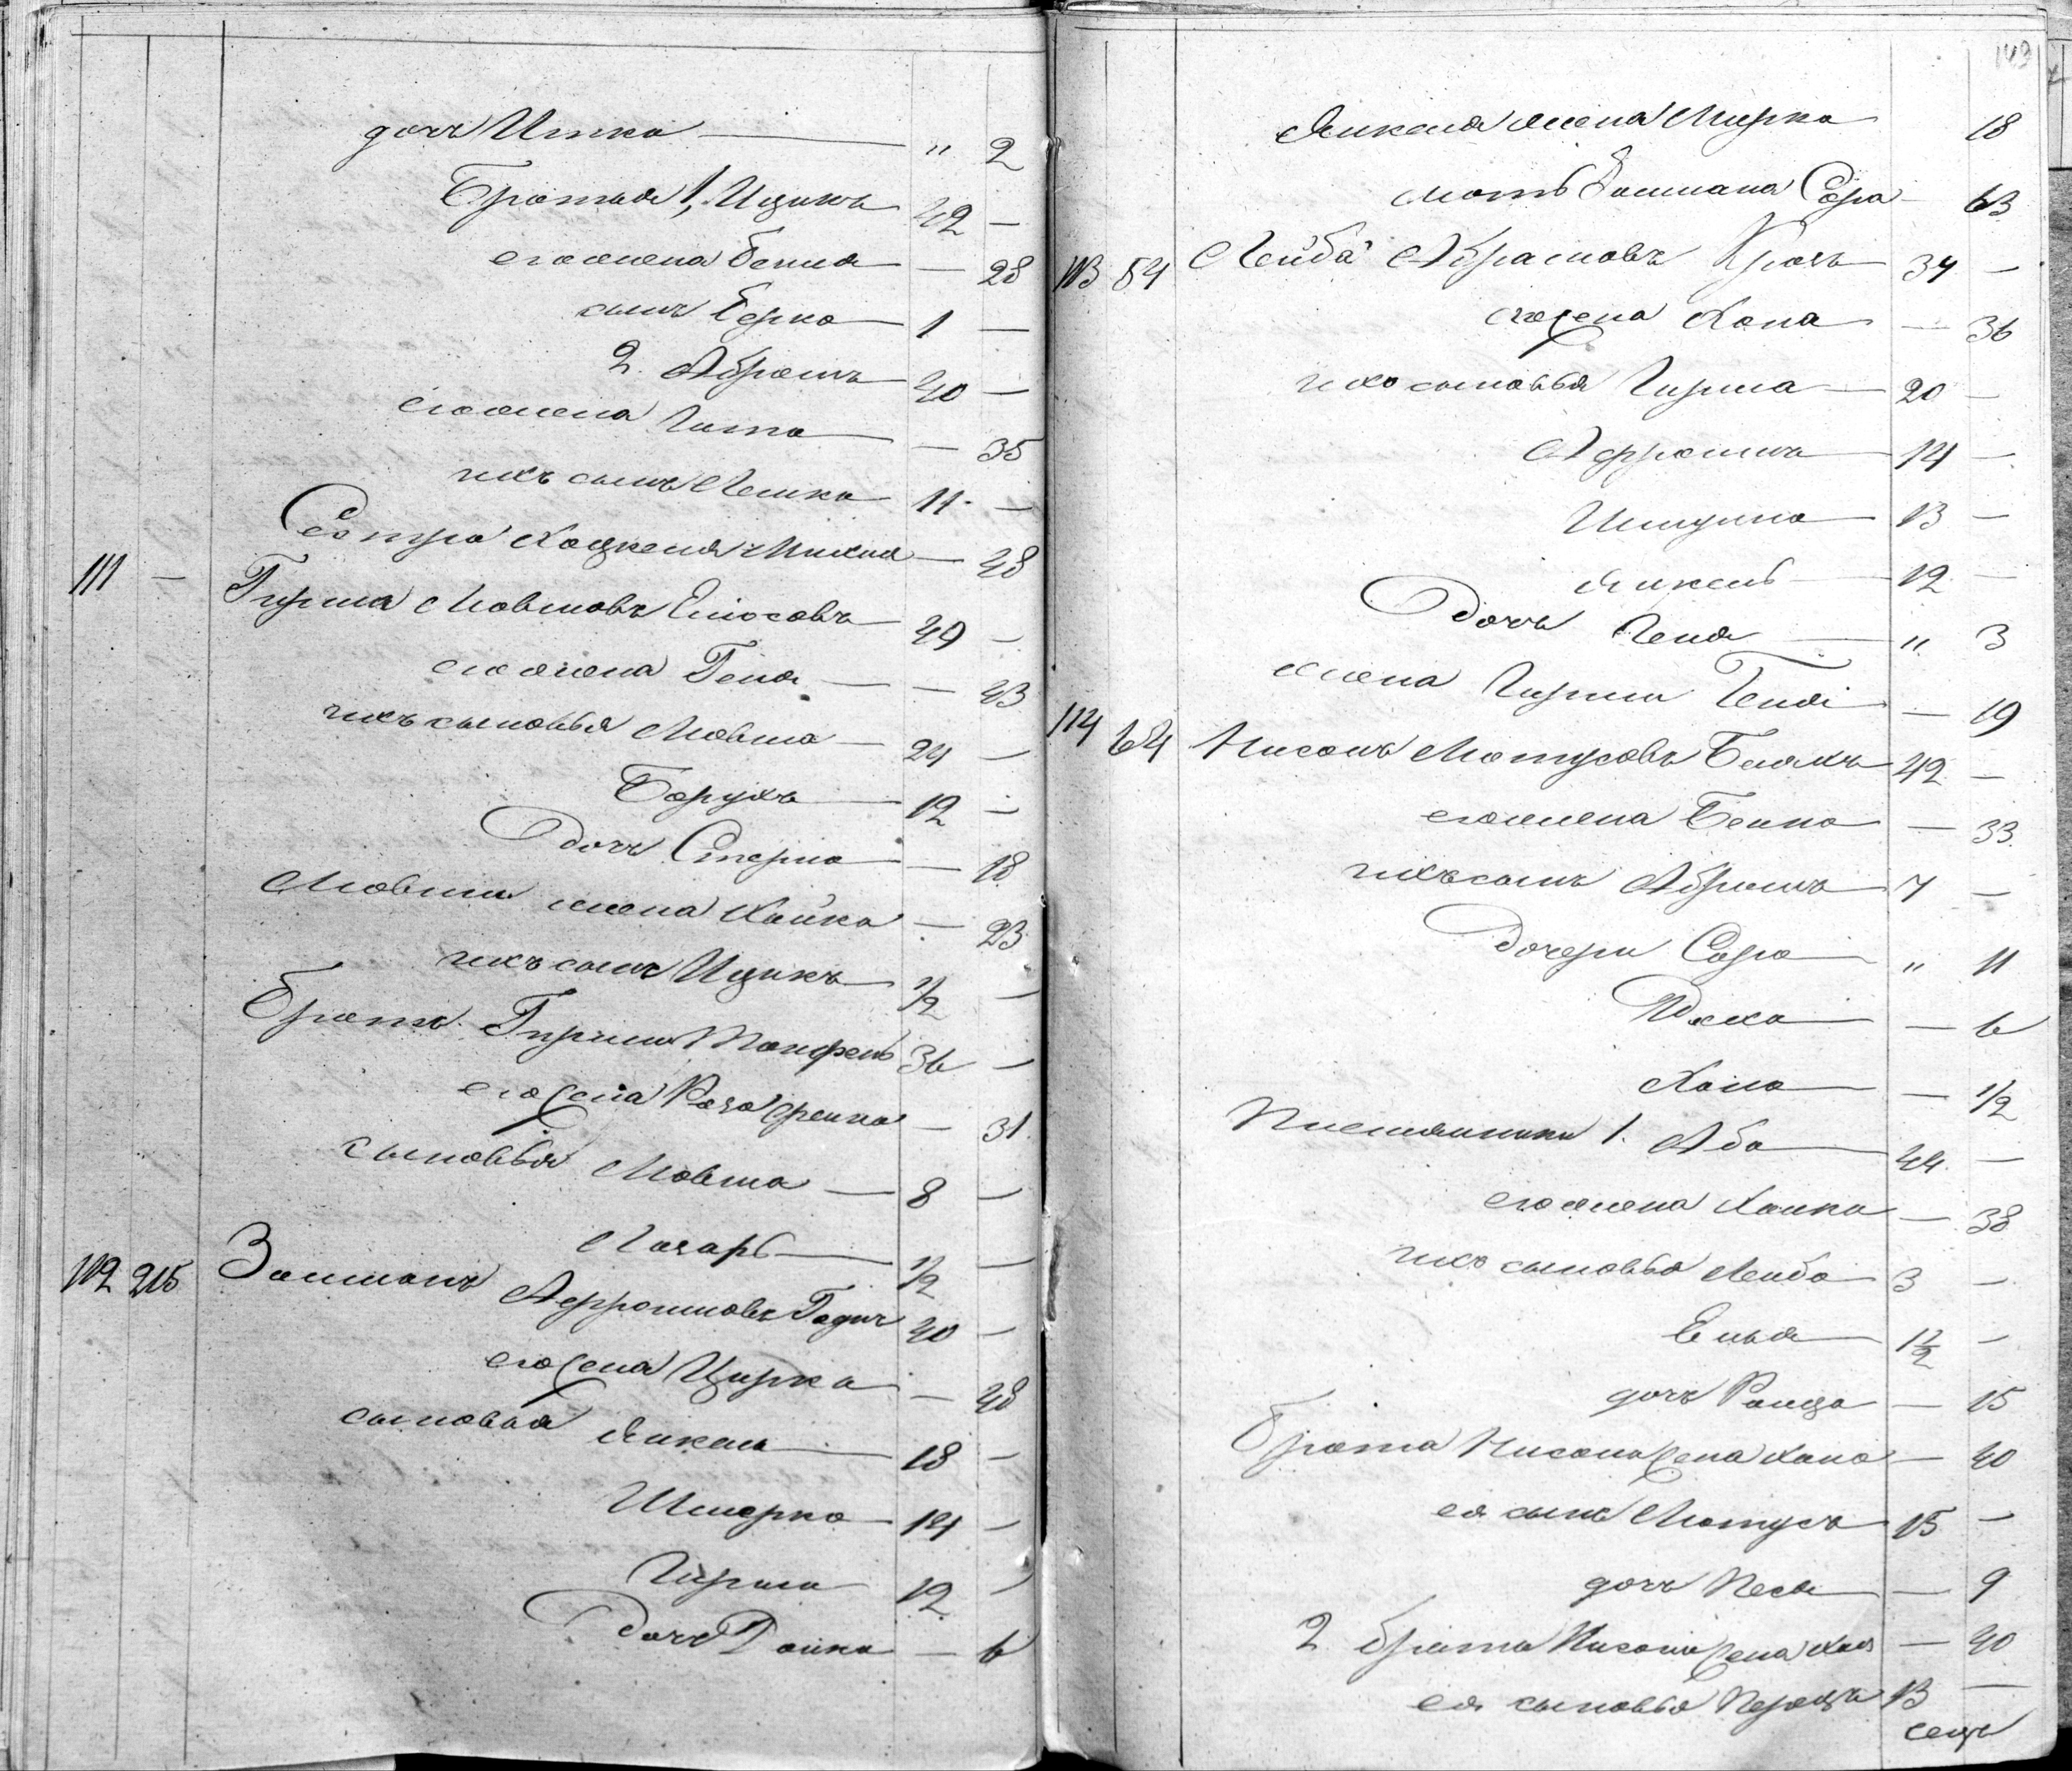 дочь Итка — " 2
Братья 1, Ицикъ 42 —
его жена Бейля — 28
сынъ Берко 1 —
2. Абрамъ 40 —
его жена Гита — 35
ихъ сынъ Лейка 11 —
Сестра Хацкеля — 48
111 — Гирша Мовшовъ 49 —
его жена Геня — 43
ихъ сыновья Мовша 24 —
Борухъ 12 —
Дочь Стерна — 18
Мовши жена Хайка — 23
ихъ сынъ Ицикъ 1/2 —
Братъ Гирши 36 —
его жена — 31
сыновья Мовша 8 —
Лазарь 1/2 —
112 215 Залманъ Афроимовъ 40 —
его жена Цирка — 48
сыновья Янкель 18 —
Шмерко 14 —
Гирша 12 —
Дочь — 6
143
Янкеля жена Мирка 18
мать Залмана Сора — 63
113 54 Лейба Абрамовъ 34 —
его жена Хана — 36
ихъ сыновья Гирша 20 —
Афроимъ 14 —
13 —
Янкель 12 —
Дочь Геня " 3
жена Гирши Геня — 19
114 64 Нисонъ Мотусовъ Белякъ 42 —
его жена Бейна — 33
ихъ сынъ Абрамъ 7 —
Дочери Сора " 11
— 6
Хана — 1/2
Племянники 1. Аба 24 —
его жена Ханна — 38
ихъ сыновья Лейба 3 —
Елья 1 1/2 —
дочь — 15
брата Нисона жена Хана — 40
ея сынъ Мотусъ 15 —
дочь Песя — 9
2 брата Нисона жена — 40
ея сыновья Перецъ 13 —